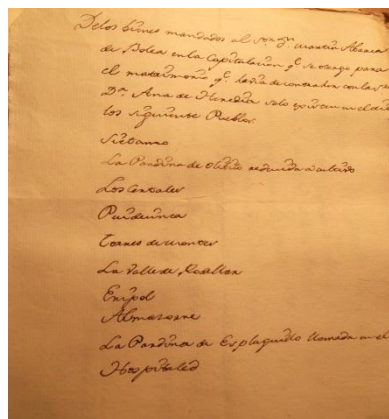 De los bienes mandados al sor. Dn. Martin Abarca
de Bolea en la Capitulacion qe. se otorgo para
el matrimonio qe. havia de contraher con la sra
Da. Ana de Heredia solo existen en el dia
los siguientes Pueblos
Sietamo
La Pardina de reducida a
Los Certales
Puidueñca
Torres de montes
La Valle de Rodellar
Eripol
Almazorre
La Pardina de Esplaguillo llamada en el
Hospitaled